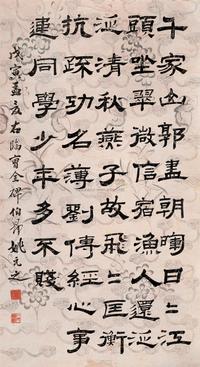 千家山郭朝日〻江
頭坐翠微信宿漁人還泛
泛清秋燕子故飛〻匡衡
抗疏功名薄劉傳經心事
違同學少年多不賤
戊寅孟夏右臨曹全碑伯昂姚元之